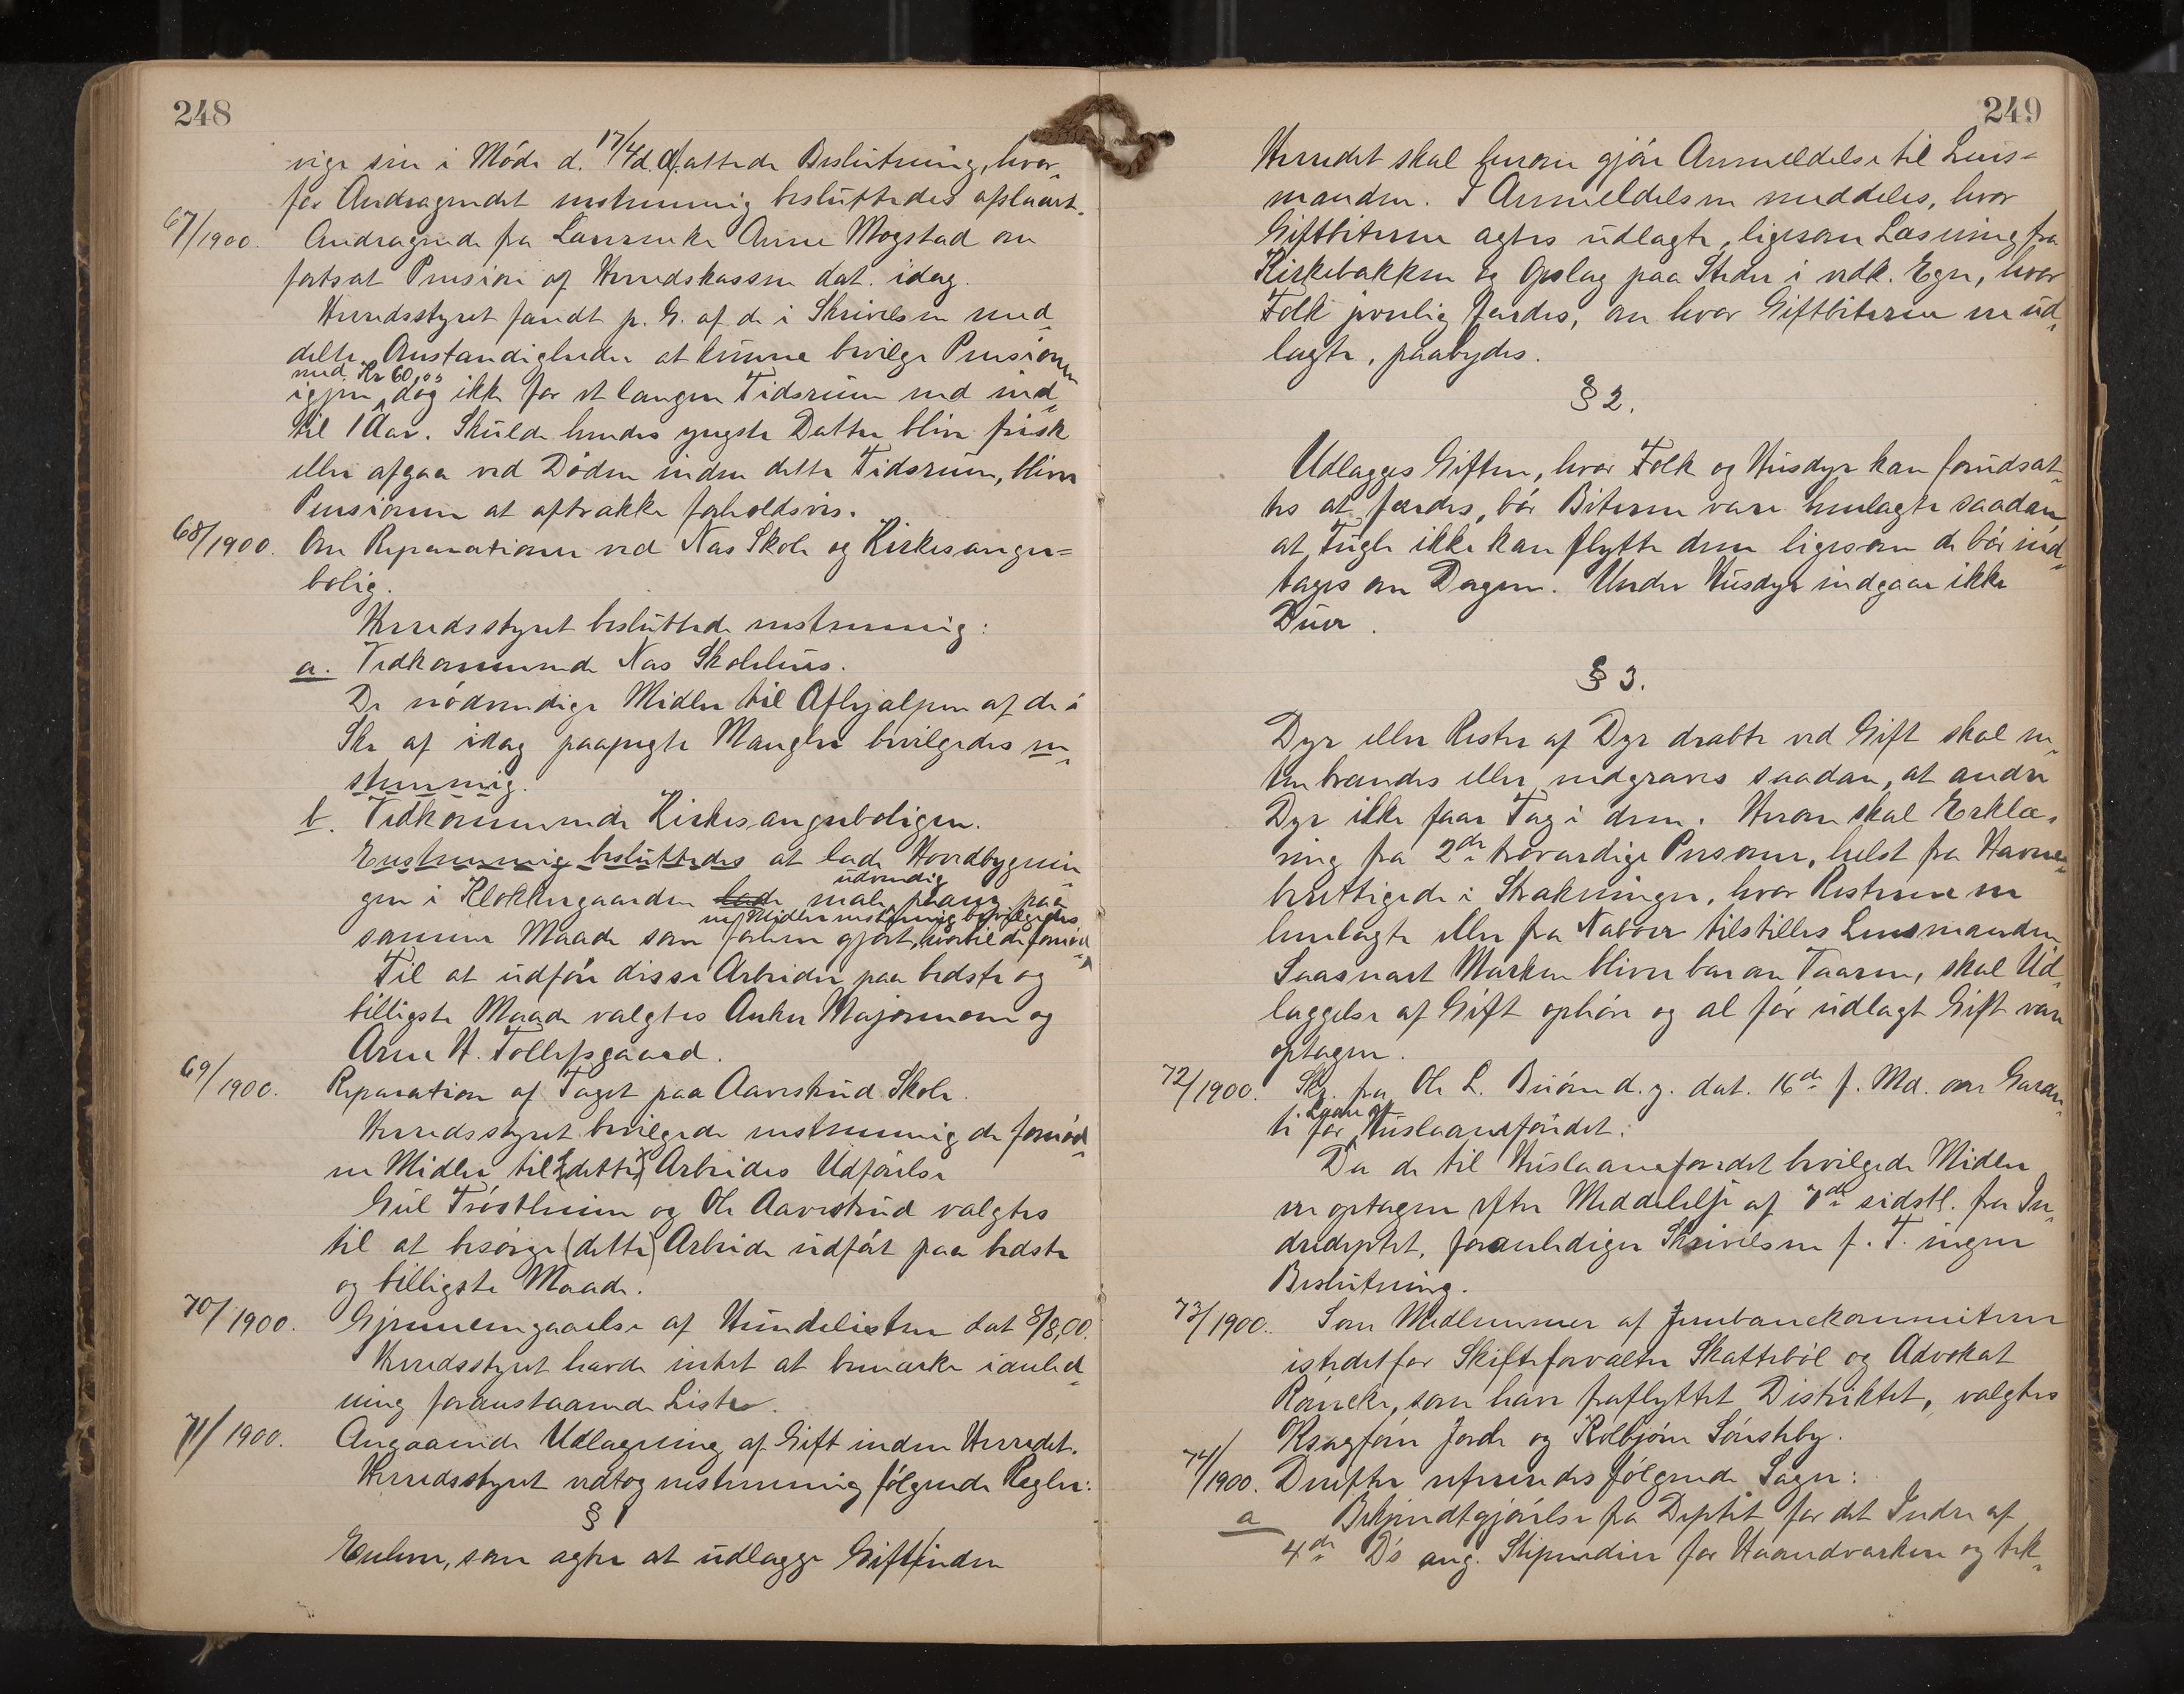 248
vige sin i Møde d. 17/4 d. A. fattede Beslutning, hvor-
for Andragendet enstemmig besluttedes afslaaet.
67/1900. Andragende fra Lærerenke Anne Mogstad om
fortsat Pension af Herredskassen dat. idag.
Herredsstyret fandt p. G. af de i Skrivelsen med-
delte Omstændigheder at kunne bevilge Pensionen
med Kr 60,00
igjen, dog ikke for et længere Tidsrum end ind-
til 1 Aar. Skulde hendes yngste Datter blive frisk
eller afgaa ved Døden inden dette Tidsrum, bliver
Pensionen at aftrække forholdsvis.
68/1900. Om Reparationer ved Næs Skole og Kirkesanger=
bolig.
Herredsstyret besluttede enstemmig:
a. Vedkommende Næs Skolehus.
De nødvendige Midler til Afhjælpen af de i
Skr af idag paapegte Mangler bevilgedes en-
stemmig.
b. Vedkommende Kirkesangerboligen.
Enstemmig besluttedes at lade Hovedbygnin-
udvendig
gen i Klokkergaarden lade male paany paa
ne Midler enstemmig bevilgedes
samme Maade som forhen gjort, hvortil de fornød-
Til at udføre disse Arbeider paa bedste og
billigste Maade valgtes Anker Majormoen og
Arne H. Tollefsgaard.
69/1900. Reparation af Taget paa Aavestrud Skole.
Herredsstyret bevilgede enstemmig de fornød-
ne Midler til (dette) Arbeides Udførelse
Gul Trøstheim og Ole Aavestrud valgtes
til at besørge (dette) Arbeide udført paa bedste
og billigste Maade.
70/1900. Gjennemgaaelse af Hundelisten dat 8/8,00.
Herredsstyret havde intet at bemærke i anled-
ning foranstaaende Liste.
71/1900. Angaaende Udlægning af Gift inden Herredet.
Herredsstyret vedtog enstemmig følgende Regler:
§ 1
Enhver, som agter at udlægge Gift inden
249
Herredet skal herom gjøre Anmeldelse til Lens=
manden. I Anmeldelsen meddeles, hvor
Giftbiterne agtes udlagte, ligesom Læsning fra
Kirkebakken og Opslag paa Steder i vedk. Egn, hvor
Folk jevnlig færdes, om hvor Giftbiterne er ud-
lagte, paabydes.
§ 2.
Udlægges Giften, hvor Folk og Husdyr kan forudsæt-
tes at færdes, bør Biterne være henlagte saadan,
at Fugle ikke kan flytte dem ligesom de bør ind-
tages om Dagen. Under Husdyr indgaar ikke
Duer.
§ 3.
Dyr eller Rester af Dyr dræbte ved Gift skal en-
ten brændes eller nedgraves saadan, at andre
Dyr ikke faar Tag i dem. Herom skal Erklæ-
ring fra 2de troværdige Personer, helst fra Havne-
berettigede i Strækningen, hvor Resterne er
henlagte eller fra Naboer tilstilles Lensmanden
Saasnart Marken bliver bar om Vaaren, skal Ud-
læggelse af Gift ophøre og al før udlagt Gift være
optagen.
72/1900. Skr. fra Ole L. Buøen d. y. dat. 16de f. Md. om Garan-
Laan af
ti for Huslaanefondet.
Da de til Huslaanefondet bevilgede Midler
er optagen efter Meddelelse af 7de sidstl. fra In-
dredeptet, foranlediger Skrivelsen f. T. ingen
Beslutning.
73/1900. Som Medlemmer af Jernbanekommiteen
istedetfor Skifteforvalter Skattebøl og Advokat
Røncke, som have fraflyttet Distriktet, valgtes
Ksagfører Jorde og Kolbjørn Sønsteby.
74/1900. Derefter refereredes følgende Sager:
a Bekjendtgjørelse fra Deptet for det Indre af
4de Ds ang. Stipendier for Haandværkere og tek-